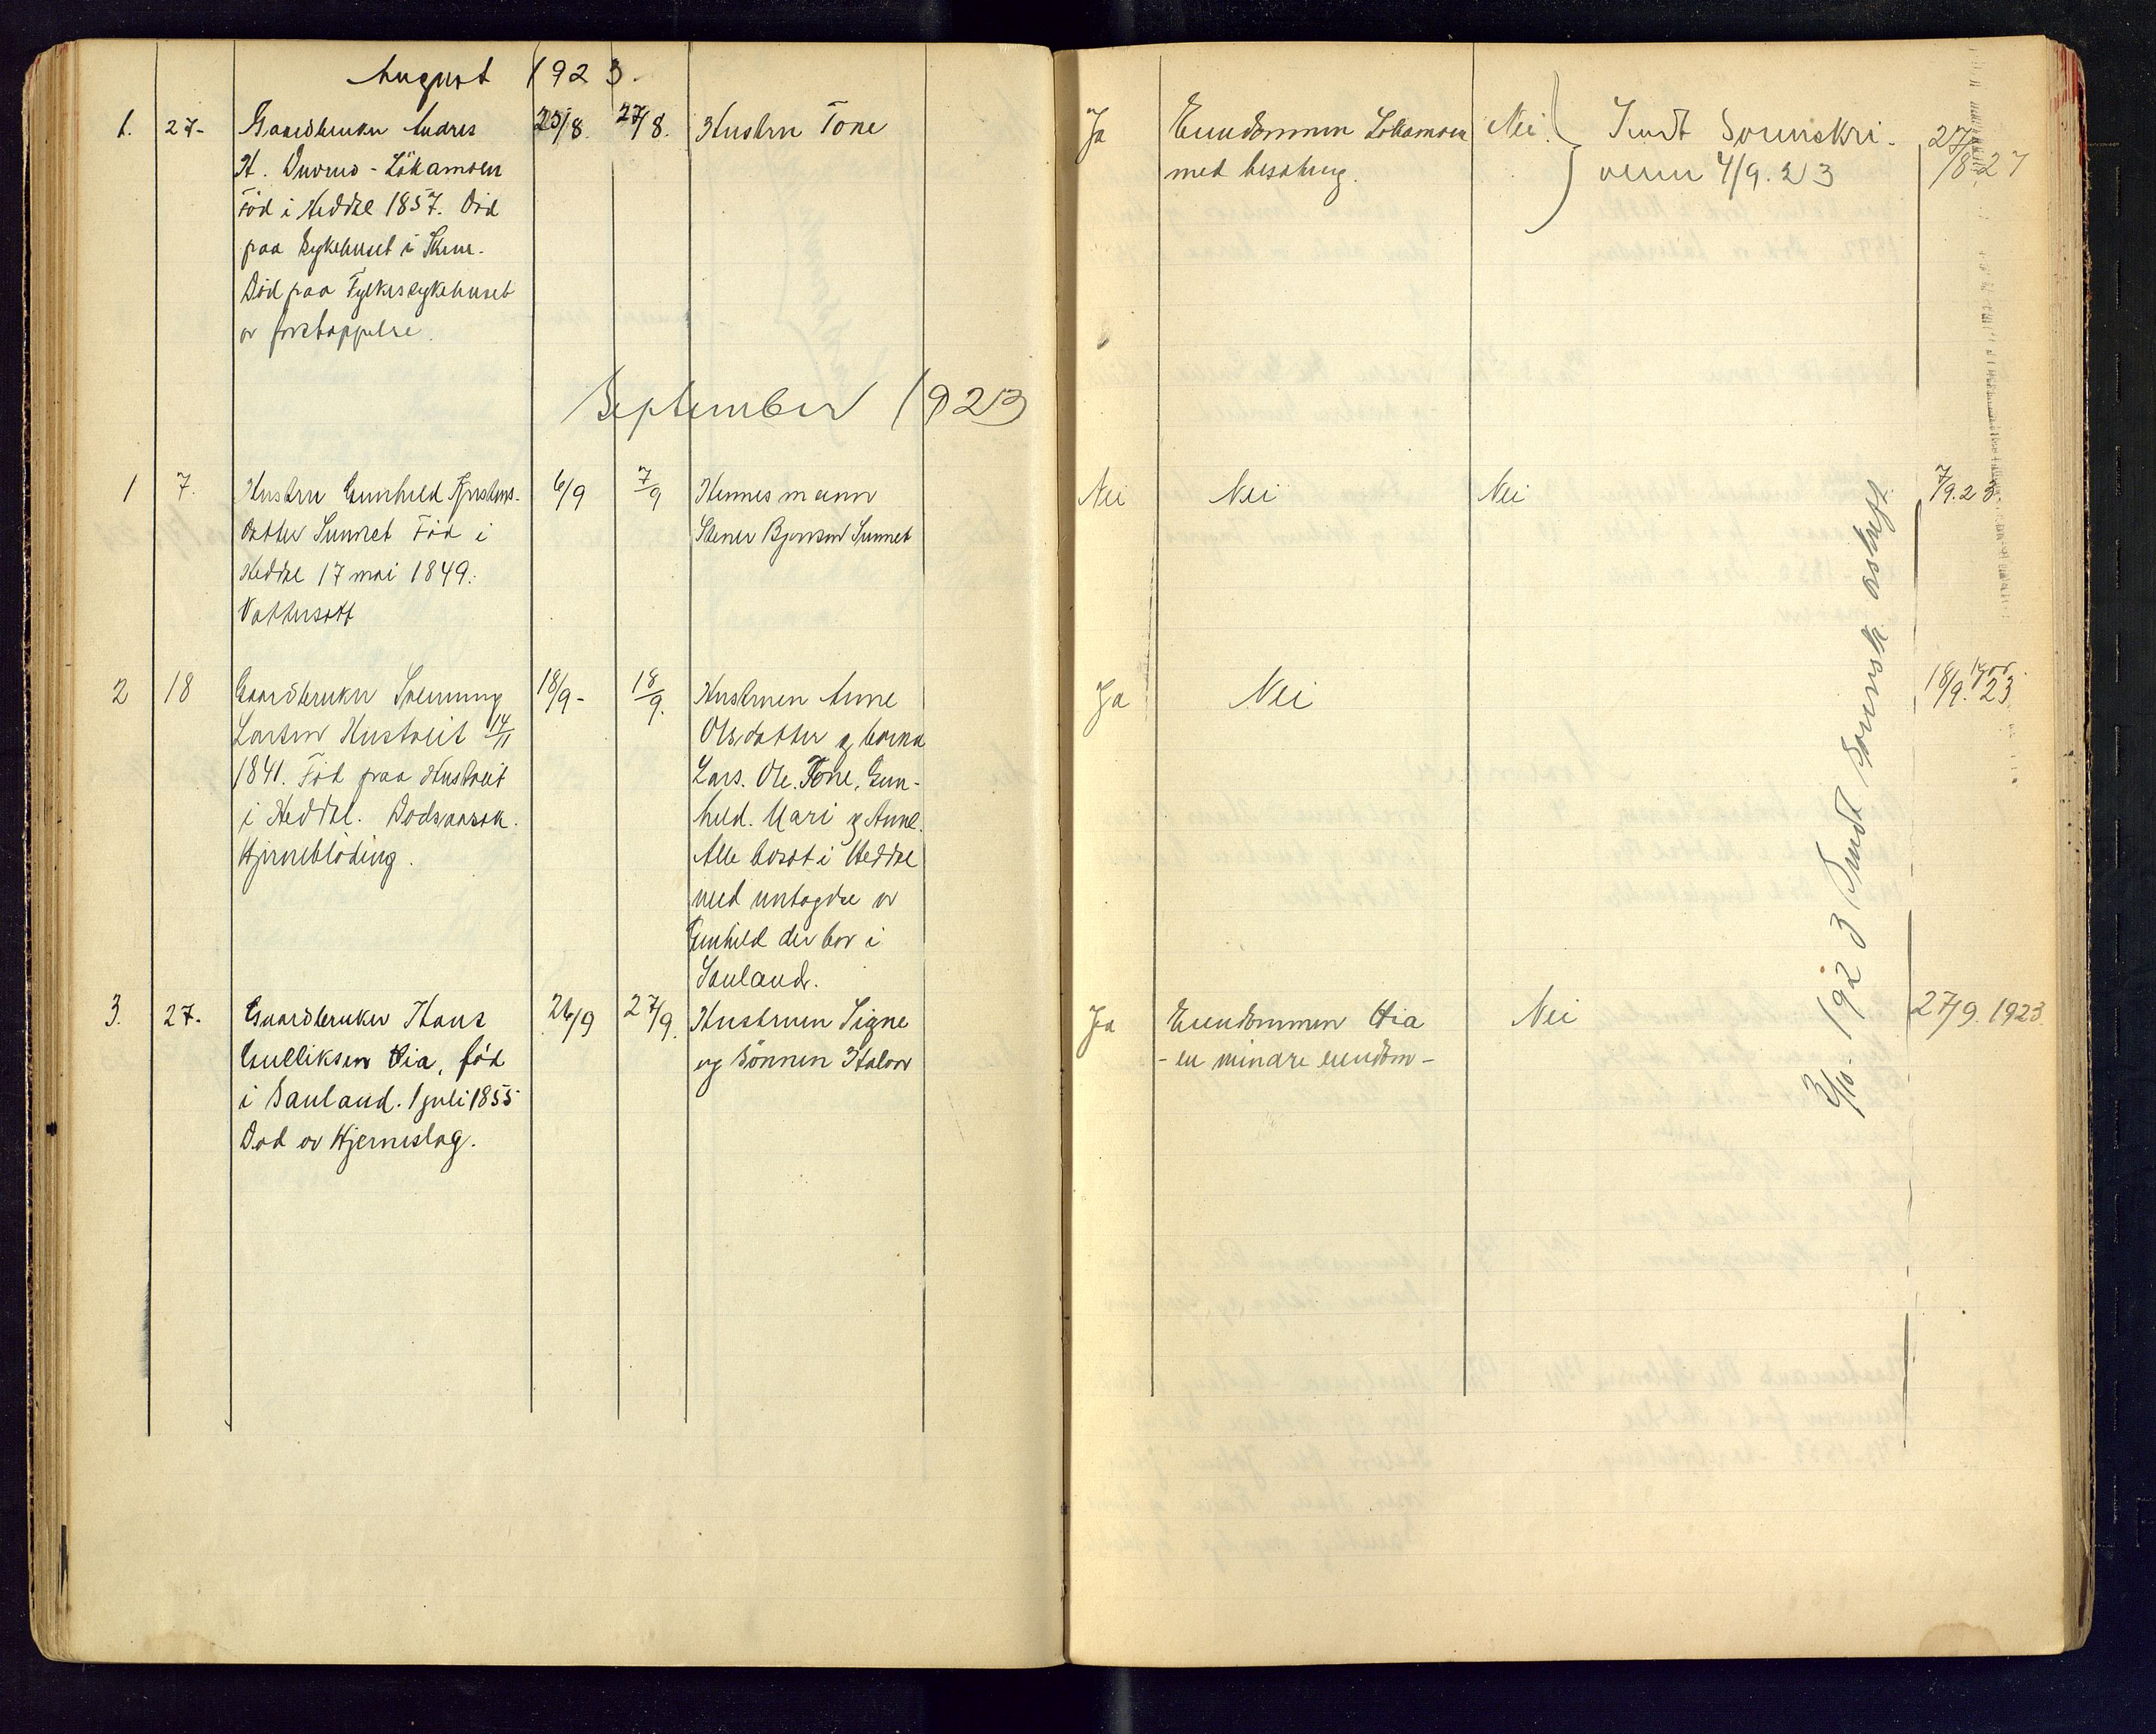 August 1923.
1. 27- Gaardbruker Andres 25/8. 27/8. Hustru Tone Ja Eiendommen Lökamoen Nei. Sendt Sorenskri- 27/8 27
H. - Lökamoen med besætning. veren 4/9. 23
Föd i Heddal 1857. Död
paa Sykehuset i Skien.
Död paa Fylkessykehuset
av forstoppelse.
September 1923
1 7. Hustru Gunhild 6/9 7/9 Hennes mann Nei Nei Nei 7/9. 23.
datter Sunnet Föd i Stener Bjornson Sunnet
Heddal 17 mai 1849.
Vattersott
2 18 Gaardbruker Svenung 18/9- 18/9. Hustruen Anne Ja Nei 18/9. 23
Larsen Hustveit 14/11 Olsdatter og barna
1841. Föd paa Hustveit Lars. Ole. Tone, Gun-
i Heddal. Dodsaarsak. hild. Mari og Anne.
Hjerneblöding. Alle bosat i Heddal
med untagelse av
Gunhild der bor i
Sauland.
3. 27. Gaardbruker Hans 26/9 27/9. Hustruen Signe Ja Eiendommen Hia Nei 27/9. 1923.
Gulliksen Hia, föd og Sönnen Halvor - en mindre eiendom -
i Sauland. 1 juli 1855
Död av Hjerneslag.
3/10. 1923 Sendt Sorensk. avskrift.